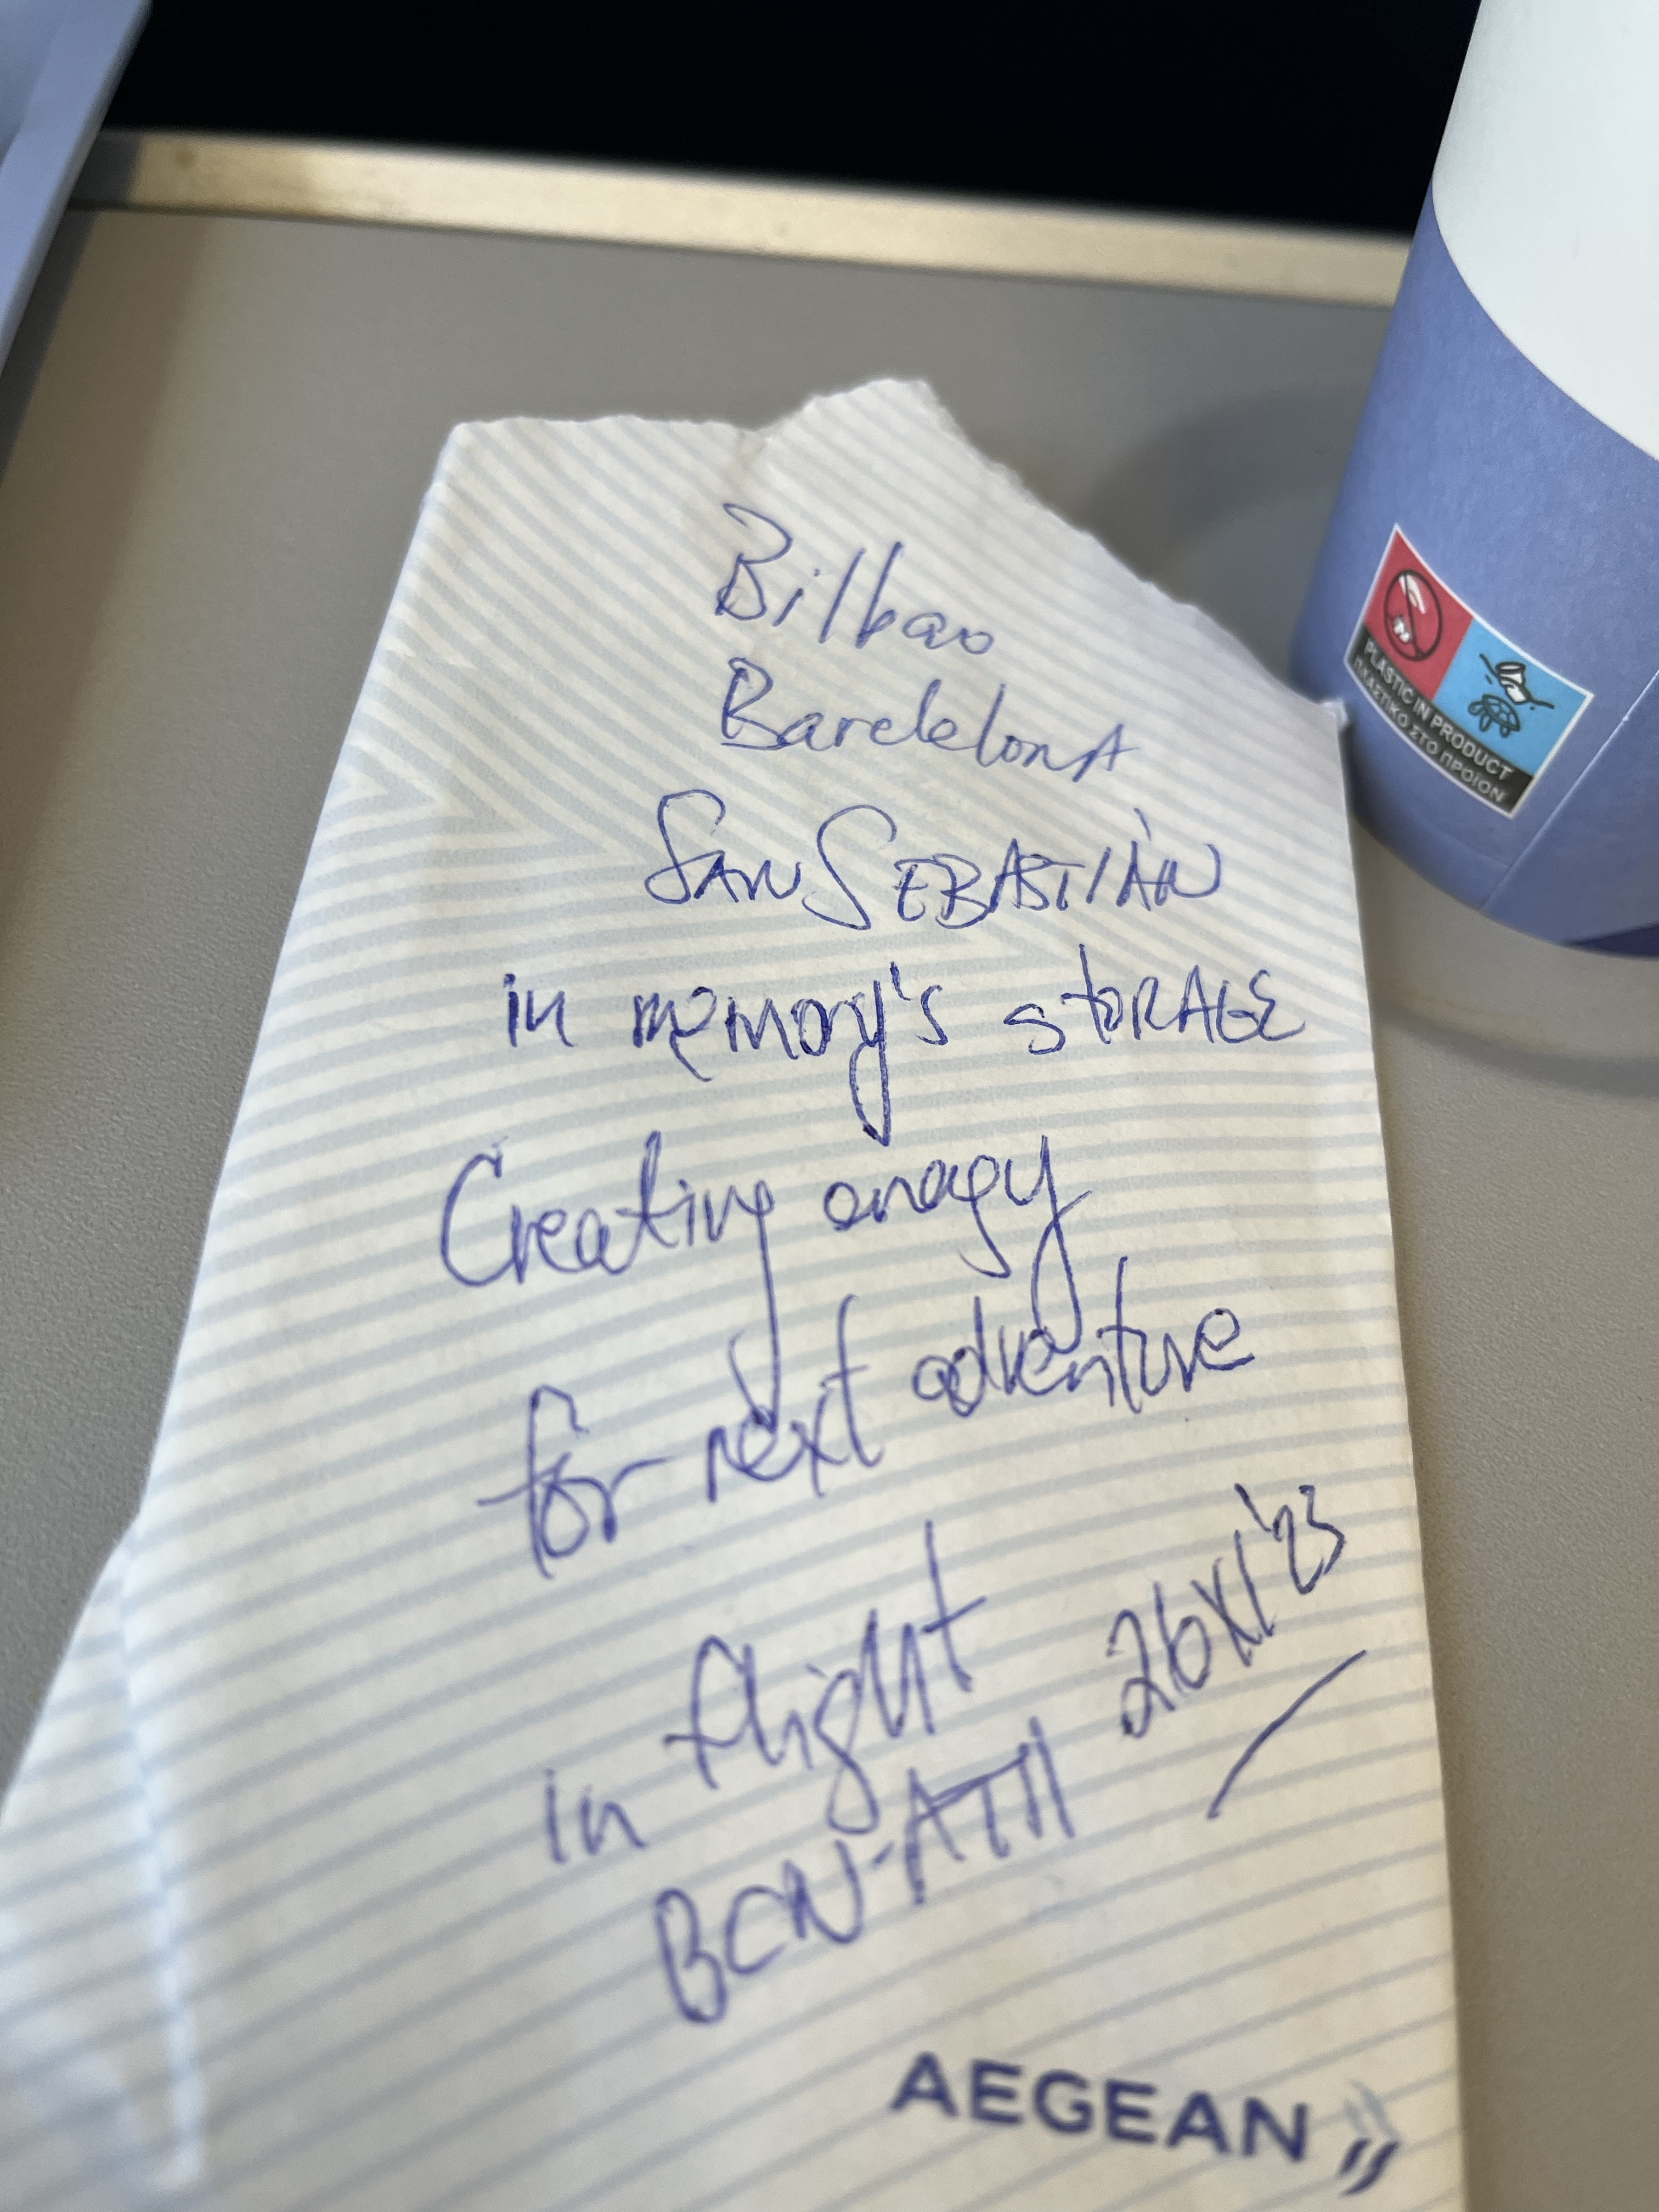 Bilbao
Barcelona
SAN SEBASTIÀN
in memory's stORAGE
Creating energy
for next adventure
in flight
BCN-ATH 26XI'23
AEGEAN
PLASTIC IN PRODUCT
ΠΛΑΣΤΙΚΟ ΣΤΟ ΠΡΟΪΟΝ